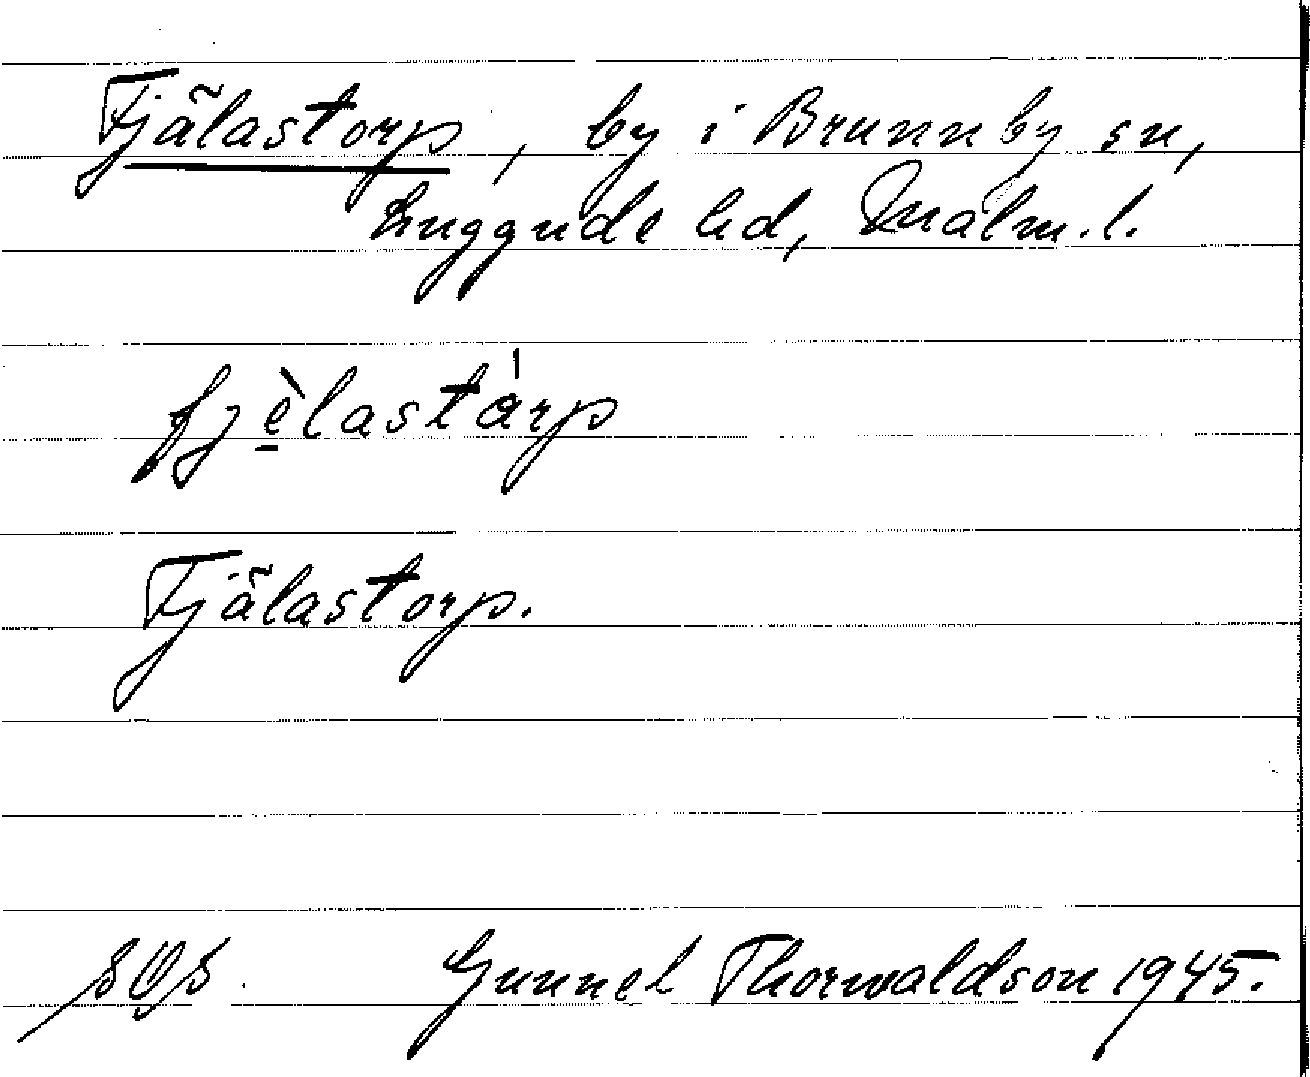 Fjälastorp, by i Brunnby sn,
Luggude hd, Malm. l.
fjè̱lastárp
Fjälastorp.
Gunnel Thorwaldson 1945.